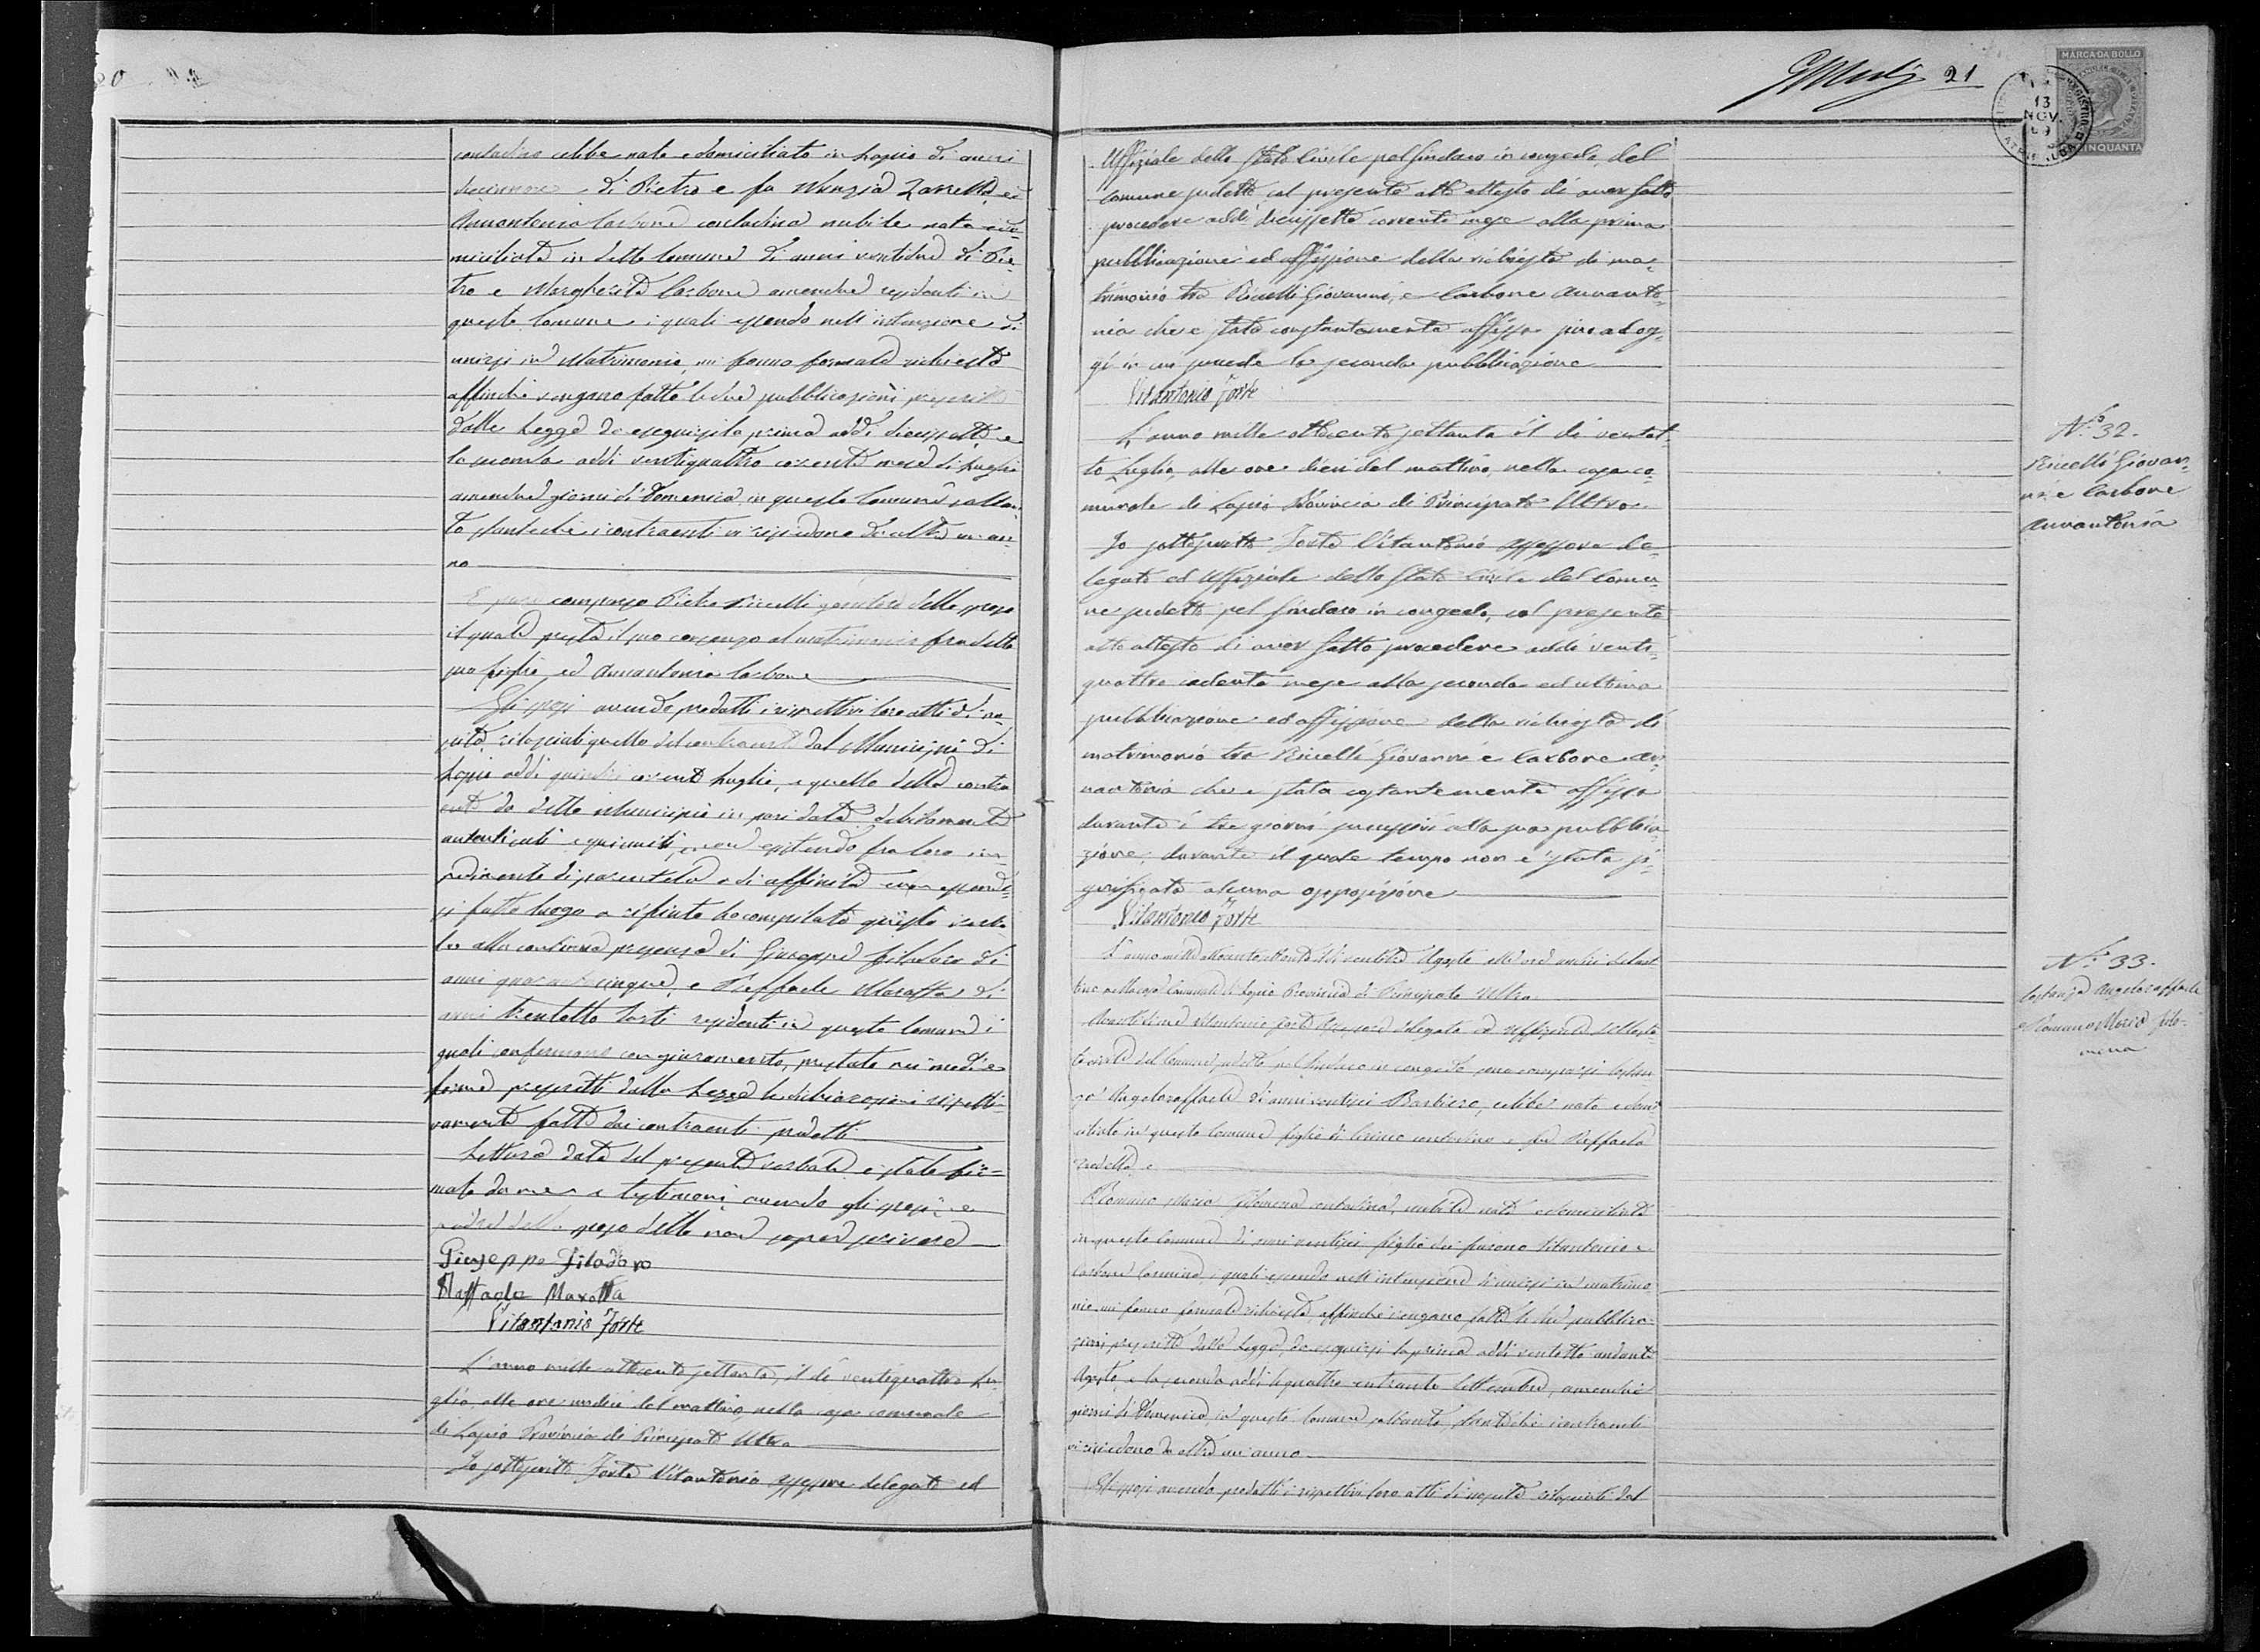 contadino celibe nato e domiciliato in Lapio di anni
diecinnove di Pietro e fu Nunzia Zarrella, ed
Annantonia Carbone contadina nubile nata e do=
miciliata in detto Comune di anni ventidue di Pie=
tro e Margherita Carbone amendue residenti in
questo Comune, i quali essendo nell'intenzione di
unirsi in Matrimonio, mi fanno formale richiesta
affinchè vengano fatte le due pubblicazioni prescritte
dalla Legge da eseguirsi la prima addì diecissette e
la seconda addì ventiquattro corrente mese di Luglio
amendue giorni di Domenica in questo Comune soltan=
to stantechè i contraenti vi risiedono da oltre un an=
no
E pure comparso Pietro Ricelli genitore dello sposo
il quale presta il suo consenso al matrimonio fra detto
suo figlio, ed Annantonia Carbone
Gli sposi avendo prodotti i rispettivi loro atti di na=
scita, rilasciati quello del contraente dal Municipio di
Lapio addì quindici corrente Luglio, e quello della contra
ente da detto Municipio in pari data debitamente
autenticati e non esistendo fra loro im=
pedimento di parentela o di affinità non essendo=
si fatto luogo a rifiuto ho compilato questo verba
le alla continua presenza di Giuseppe Filadoro di
anni quarantacinque, e Raffaele Marotta di
anni trentotto Sarti residenti in questo Comune i
quali confermano con giuramento, prestato nei modi e
forme prescritti dalla Legge le dichiarazioni rispetti=
vamente fatte dai contraenti predetti
Lettura data del presente verbale è stato fir=
mato da me e testimoni avendo gli sposi e
padre dello sposo detto non saper scrivere
Giuseppe Filadoro
Raffaele Marotta
Vitantonio Forte
L'anno mille ottocento settanta, il dì ventiquattro Lu
glio alle ore undici del mattino, nella casa comunale
di Lapio Provincia di Principato Ultra
Io sottoscritto Forte Vitantonio assessore delegato ed
21
MARCA DA BOLLO
13
NOV.
69
CINQUANTA
Uffiziale dello Stato Civile pel Sindaco in congedo del
Comune sudetto col presente atto attesto di aver fatto
procedere addì diecissette corrente mese alla prima
pubblicazione ed affissione della richiesta di ma=
trimonio tra Ricelli Giovanni, e Carbone Annanto=
nia che è stata constantemente affissa sino ad og=
gi in cui succede la seconda pubblicazione
Vitantonio Forte
N.º 32.
Ricelli Giovan=
ni e Carbone
Annantonia
L'anno mille ottocento settanta il dì ventot=
to Luglio, alle ore dieci del mattino, nella casa co=
munale di Lapio Provincia di Principato Ultra
Io sottoscritto Forte Vitantonio assessore de=
legato ed Uffiziale dello Stato Civile del Comu=
ne sudetto pel Sindaco in congedo, col presente
atto attesto di aver fatto procedere addì venti=
quattro cadente mese alla seconda ed ultima
pubblicazione ed affissione della richiesta di
matrimonio tra Ricelli Giovanni e Carbone An=
nantonia che è stata costantemente affissa
durante i tre giorni successivi alla sua pubblica=
zione, durante il quale tempo non è stata si=
gnificata alcuna opposizione
Vitantonio Forte
N.º 33.
Costanza Angeloraffaele
e Romano Maria Filo=
mena
L'anno mille ottocento settanta il dì ventitre Agosto alle ore undici del mat
tino nella casa Comunale di Lapio Provincia di Principato Ultra
Avanti di me Vitantonio Forte Assessore delegato ed uffiziale dello sta=
to civile del Comune sudetto pel Sindaco in congedo sono comparsi Costan=
za Angeloraffaele di anni ventisei Barbiere, celibe nato e domi=
ciliato in questo Comune figlio di contadino e fu Raffaela
e
Romano Maria Filomena contadina, nubile nata e domiciliata
in questo Comune di anni ventisei figlia dei furono Vitantonio e
Carbone Carmina, i quali essendo nell'intenzione di unirsi in matrimo=
nio mi fanno formale richiesta, affinchè vengano fatte le due pubblica=
zioni prescritte dalla Legge, da eseguirsi la prima addì ventotto andante
Agosto, e la seconda addì quattro entrante Settembre, amendue
giorni di Domenica in questo Comune soltanto, stantechè i contraenti
vi risiedono da oltre un anno
Gli sposi avendo prodotti i rispettivi loro atti di nascita rilasciati dal